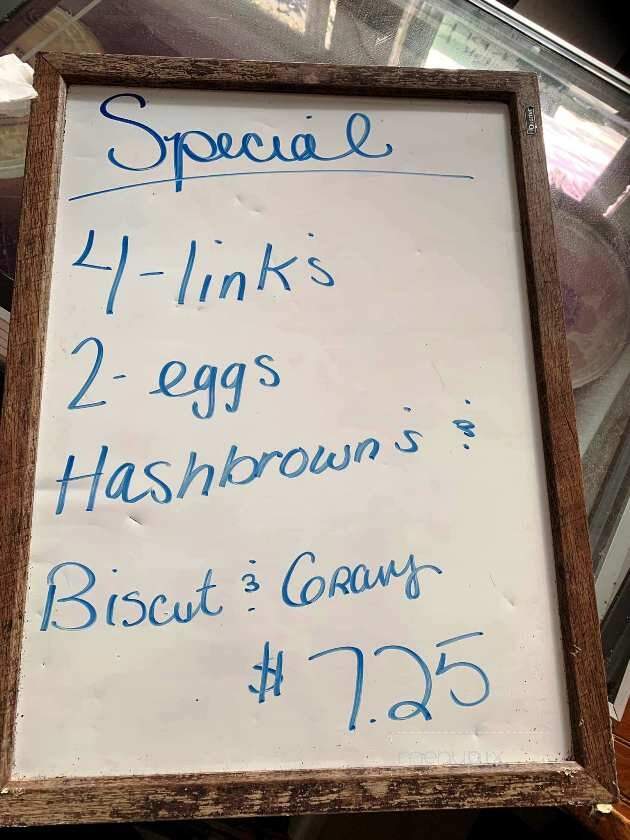 Special
4-link's
2- eggs
Hashbrown's &
Biscut & Gravy
$7.25